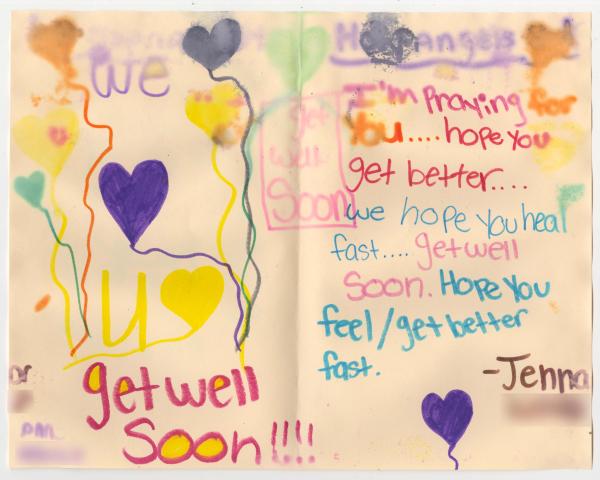 We
U
get well
Soon!!!!
get
well
Soon
I'm Praying for
You....hope you
get better....
we hope you heal
fast.... get well
Soon. Hope You
feel/get better
fast.
-Jenna